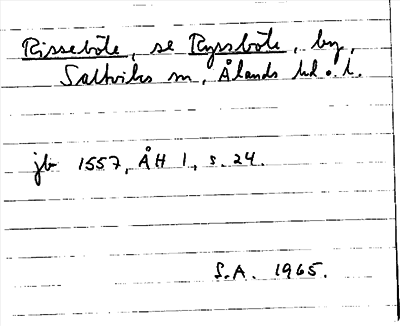 Risseböle, se Ryssböle, by,
Saltviks sn, Ålands hd o. l.
jb 1557, ÅH 1, s. 24.
S.A. 1965.